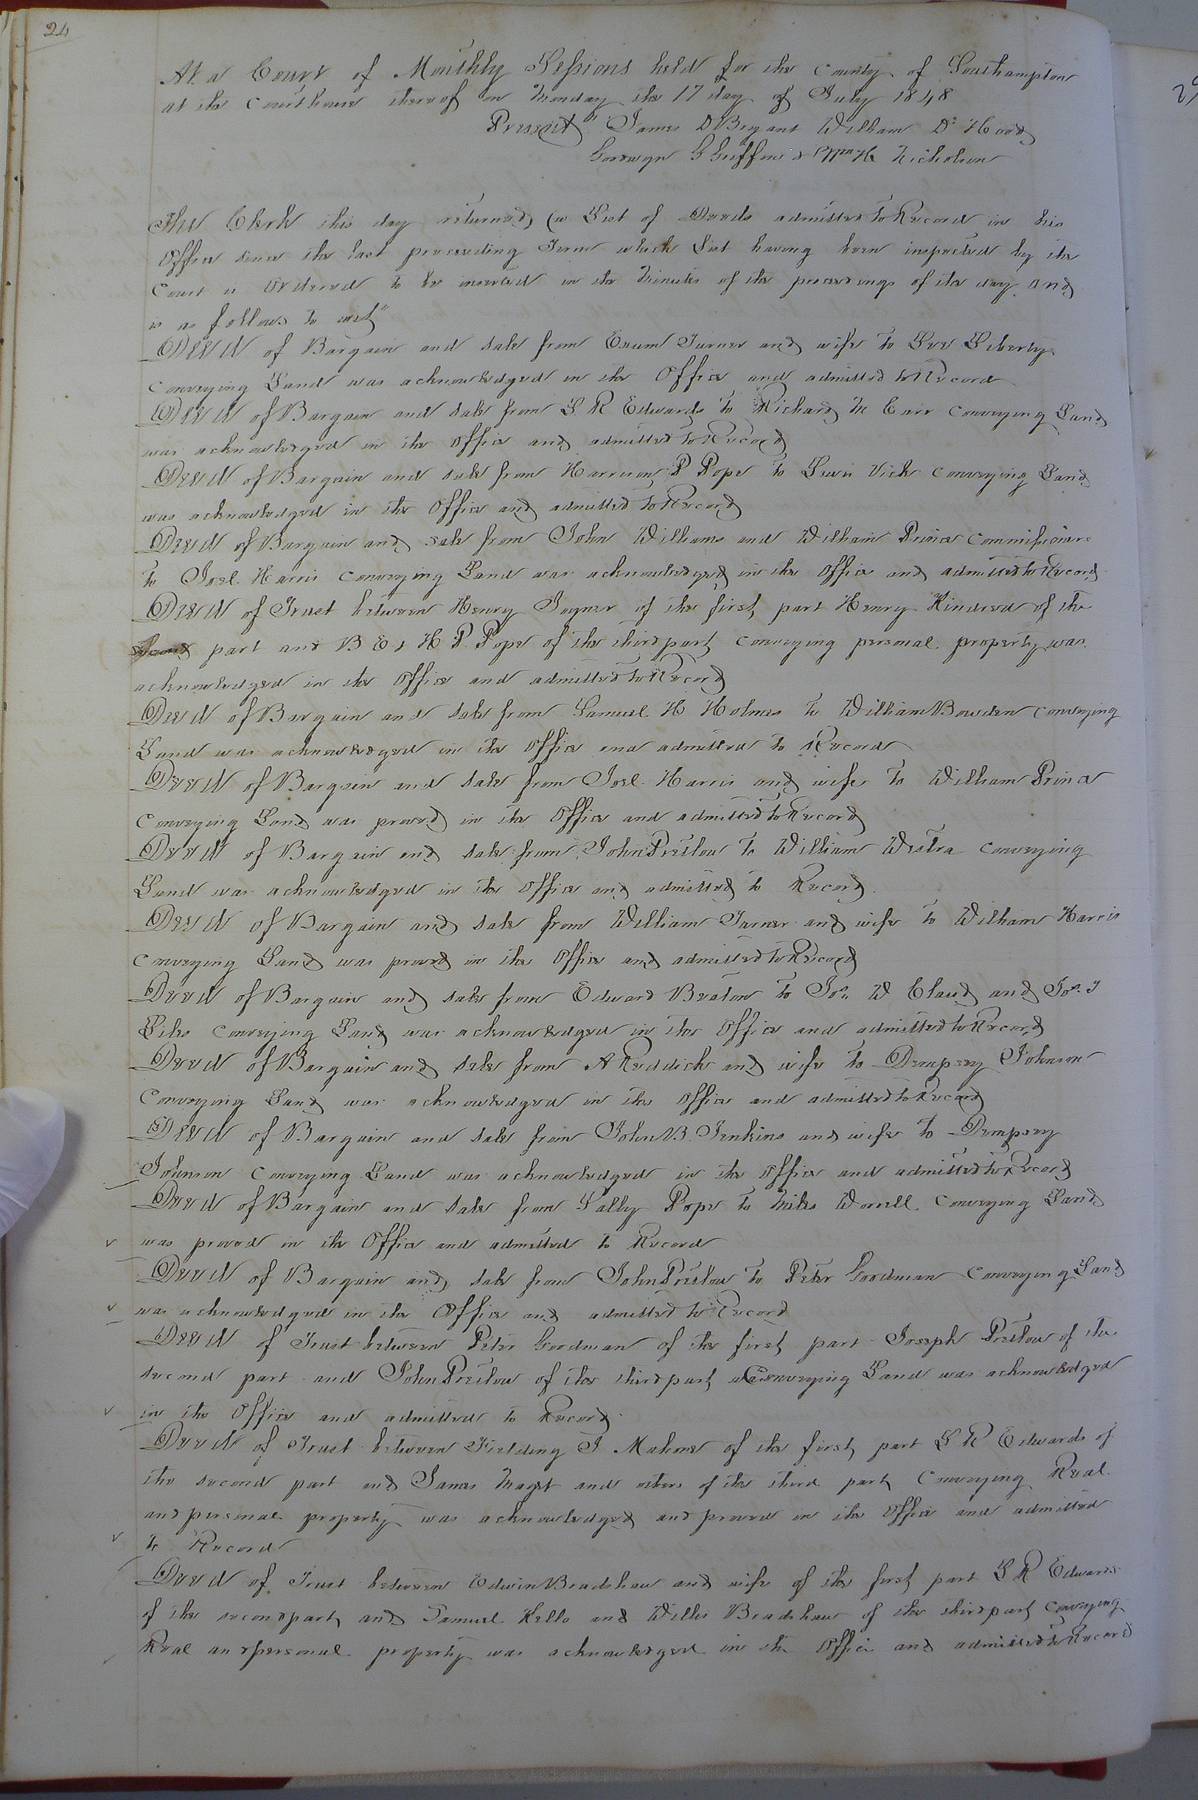 24
At a Court of Monthly Sessions held for the county of Southampton
at the Courthouse thereof on Monday the 17 day of July 1848
Present James D Bryant William D. Hood
Goodwyn G Griffin & Wm H Nicholson
The Clerk this day returned a List of Deeds admitted to Record in his
Office since the last preceeding Term which List having been inspected by the
Court is Ordered to be inserted in the Minutes of the proceedings of the day and
is as follows to wit"
Deed of Bargain and Sale from Exum Turner and wife to Lee Liberty
Conveying Land was acknowledged in the Office and admitted to Record
Deed of Bargain and Sale from L R Edwards to Richard M Carr Conveying Land
was acknowledged in the Office and admitted to Record
Deed of Bargain and Sale from Harrison P Pope to Lewis Vick Conveying Land
was acknowledged in the Office and admitted to Record
Deed of Bargain and Sale from John Williams and William Prince Commissioners
to Joel Harris Conveying Land was acknowledged in the Office and admitted to Record
Deed of Trust between Henry Joyner of the first part Henry Kindred of the
second part and B E & H P Pope of the third part Conveying personal property was
acknowledged in the Office and admitted to Record
Deed of Bargain and Sale from Samuel H Holmes to William Bowden Conveying
Land was acknowledged in the Office and admitted to Record
Deed of Bargain and Sale from Joel Harris and wife to William Prince
Conveying Land was proved in the Office and admitted to Record
Deed of Bargain and Sale from John Pretlow to William Westra Conveying
Land was acknowledged in the Office and admitted to Record
Deed of Bargain and Sale from William Turner and wife to William Harris
Conveying Land was proved in the Office and admitted to Record
Deed of Bargain and Sale from Edward Beaton to Jos. W Claud and Jos. J
Liles Conveying Land was acknowledged in the Office and admitted to Record
Deed of Bargain and Sale from A Reddick and wife to Dempsey Johnson
Conveying Land was acknowledged in the Office and admitted to Record
Deed of Bargain and Sale from John B. Jenkins and wife to Dempsey
Johnson Conveying Land was acknowledged in the Office and admitted to Record
Deed of Bargain and Sale from Sally Pope to Miles Worrell Conveying Land
was proved in the Office and admitted to Record
Deed of Bargain and Sale from John Pretlow to Peter Goodman Conveying Land
was acknowledged in the Office and admitted to Record
Deed of Trust between Peter Goodman of the first part Joseph Pretlow of the
second part and John Pretlow of the third part Conveying Land was acknowledged
in the Office and admitted to Record
Deed of Trust between Fielding J Mahone of the first part L R Edwards of
the second part and James Maget and others of the third part Conveying Real
and personal property was acknowledged and proved in the Office and admitted
to Record
Deed of Trust between Edwin Bradshaw and wife of the first part L R Edwards
of the second part and Samuel Kello and Willis Bradshaw of the third part Conveying
Real and personal property was acknowledged in the Office and admitted to Record